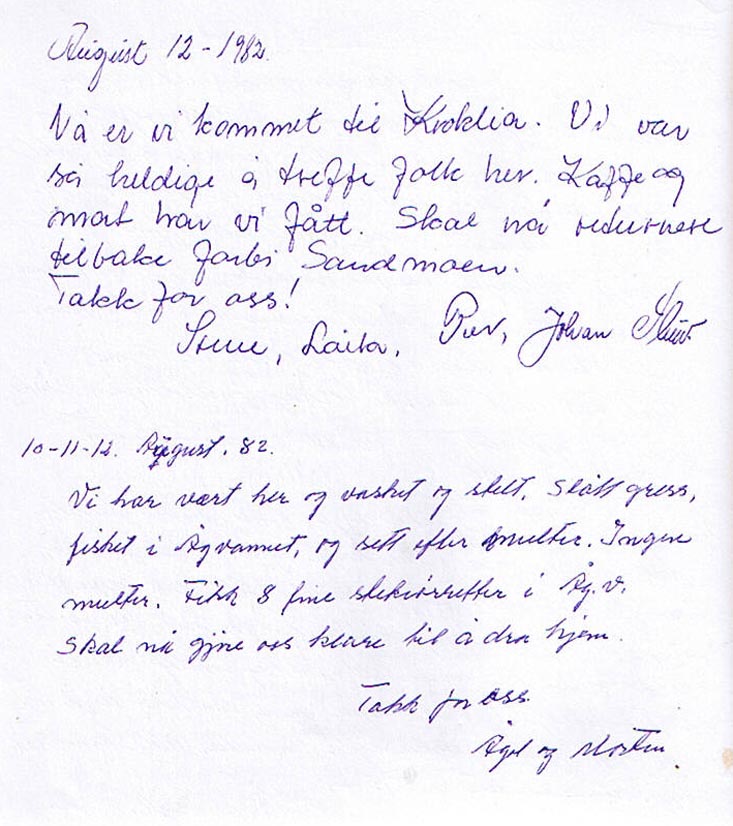 August 12 - 1982.
Nå er vi kommet til Kroklia. Vi var
så heldige å treffe folk her. Kaffe og
mat har vi fått. Skal nå returnere
tilbake forbi Sandmoen.
Takk for oss!
Laila, Per, Johan
10-11-12. August. 82.
Vi har vært her og vasket og stelt. Slått gress,
fisket i Ågvannet, og sett efter multer. Ingen
multer. Fikk 8 fine stekeørretter i Åg.v.
Skal nå gjøre oss klare til å dra hjem.
Takk for oss.
og Morten.